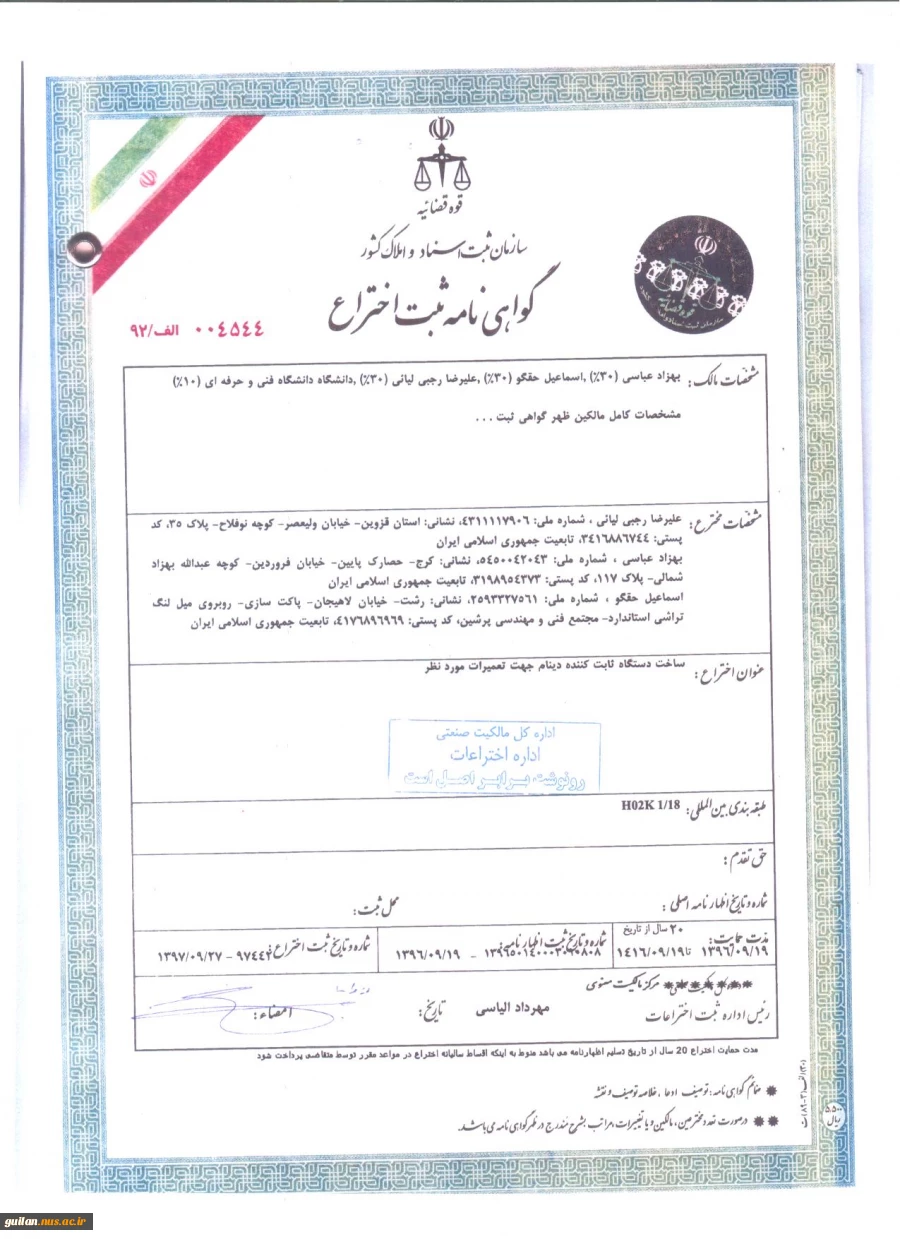 قوه قضائیه
سازمان ثبت اسناد و املاک کشور
گواهی نامه ثبت اختراع
الف/۹۲ ۰۰۴۵۴۴
مشخصات مالک: بهزاد عباسی (۳۰٪) ,اسماعیل حقگو (۳۰٪) ,علیرضا رجبی لیائی (۳۰٪) ,دانشگاه دانشگاه فنی و حرفه ای (۱۰٪)
مشخصات کامل مالکین ظهر گواهی ثبت ...
مشخصات مخترع: علیرضا رجبی لیائی ، شماره ملی: ۴۳۱۱۱۱۷۹۰۶، نشانی: استان قزوین- خیابان ولیعصر- کوچه نوفلاح- پلاک ۳۵، کد
پستی: ۳۴۱۶۸۸۶۷۴۴، تابعیت جمهوری اسلامی ایران
بهزاد عباسی ، شماره ملی: ۵۴۵۰۰۴۲۰۴۳، نشانی: کرج- حصارک پایین- خیابان فروردین- کوچه عبدالله بهزاد
شمالی- پلاک ۱۱۷، کد پستی: ۳۱۹۸۹۵۴۳۷۳، تابعیت جمهوری اسلامی ایران
اسماعیل حقگو ، شماره ملی: ۲۵۹۳۳۲۷۵۶۱، نشانی: رشت- خیابان لاهیجان- پاکت سازی- روبروی میل لنگ
تراشی استاندارد- مجتمع فنی و مهندسی پرشین، کد پستی: ۴۱۷۶۸۹۶۹۶۹، تابعیت جمهوری اسلامی ایران
عنوان اختراع: ساخت دستگاه ثابت کننده دینام جهت تعمیرات مورد نظر
اداره کل مالکیت صنعتی
اداره اختراعات
رونوشت برابر اصل است
طبقه بندی بین المللی: H02K 1/18
حق تقدم:
شماره و تاریخ اظهارنامه اصلی: محل ثبت:
مدت حمایت: ۲۰ سال از تاریخ ۱۳۹۶/۰۹/۱۹ تا ۱۴۱۶/۰۹/۱۹
شماره و تاریخ ثبت اظهارنامه: ۱۳۹۶۵۰۱۴۰۰۰۳۰۹۰۸۰۸ - ۱۳۹۶/۰۹/۱۹
شماره و تاریخ ثبت اختراع: ۱۳۹۷/۰۹/۲۷ -
مرکز مالکیت معنوی
رئیس اداره ثبت اختراعات مهرداد الیاسی تاریخ: امضاء:
مدت حمایت اختراع 20 سال از تاریخ تسلیم اظهارنامه می باشد منوط به اینکه اقساط سالیانه اختراع در مواعد مقرر توسط متقاضی پرداخت شود
✹ ضمائم گواهی نامه: توصیف، ادعا، خلاصه توصیف و نقشه
✹ ✹ درصورت تعدد مخترعین، مالکین و یا تغییرات، مراتب بشرح مندرج در ظهر گواهی نامه می باشد.
۵,۵۰۰ ریال
guilan.nus.ac.ir